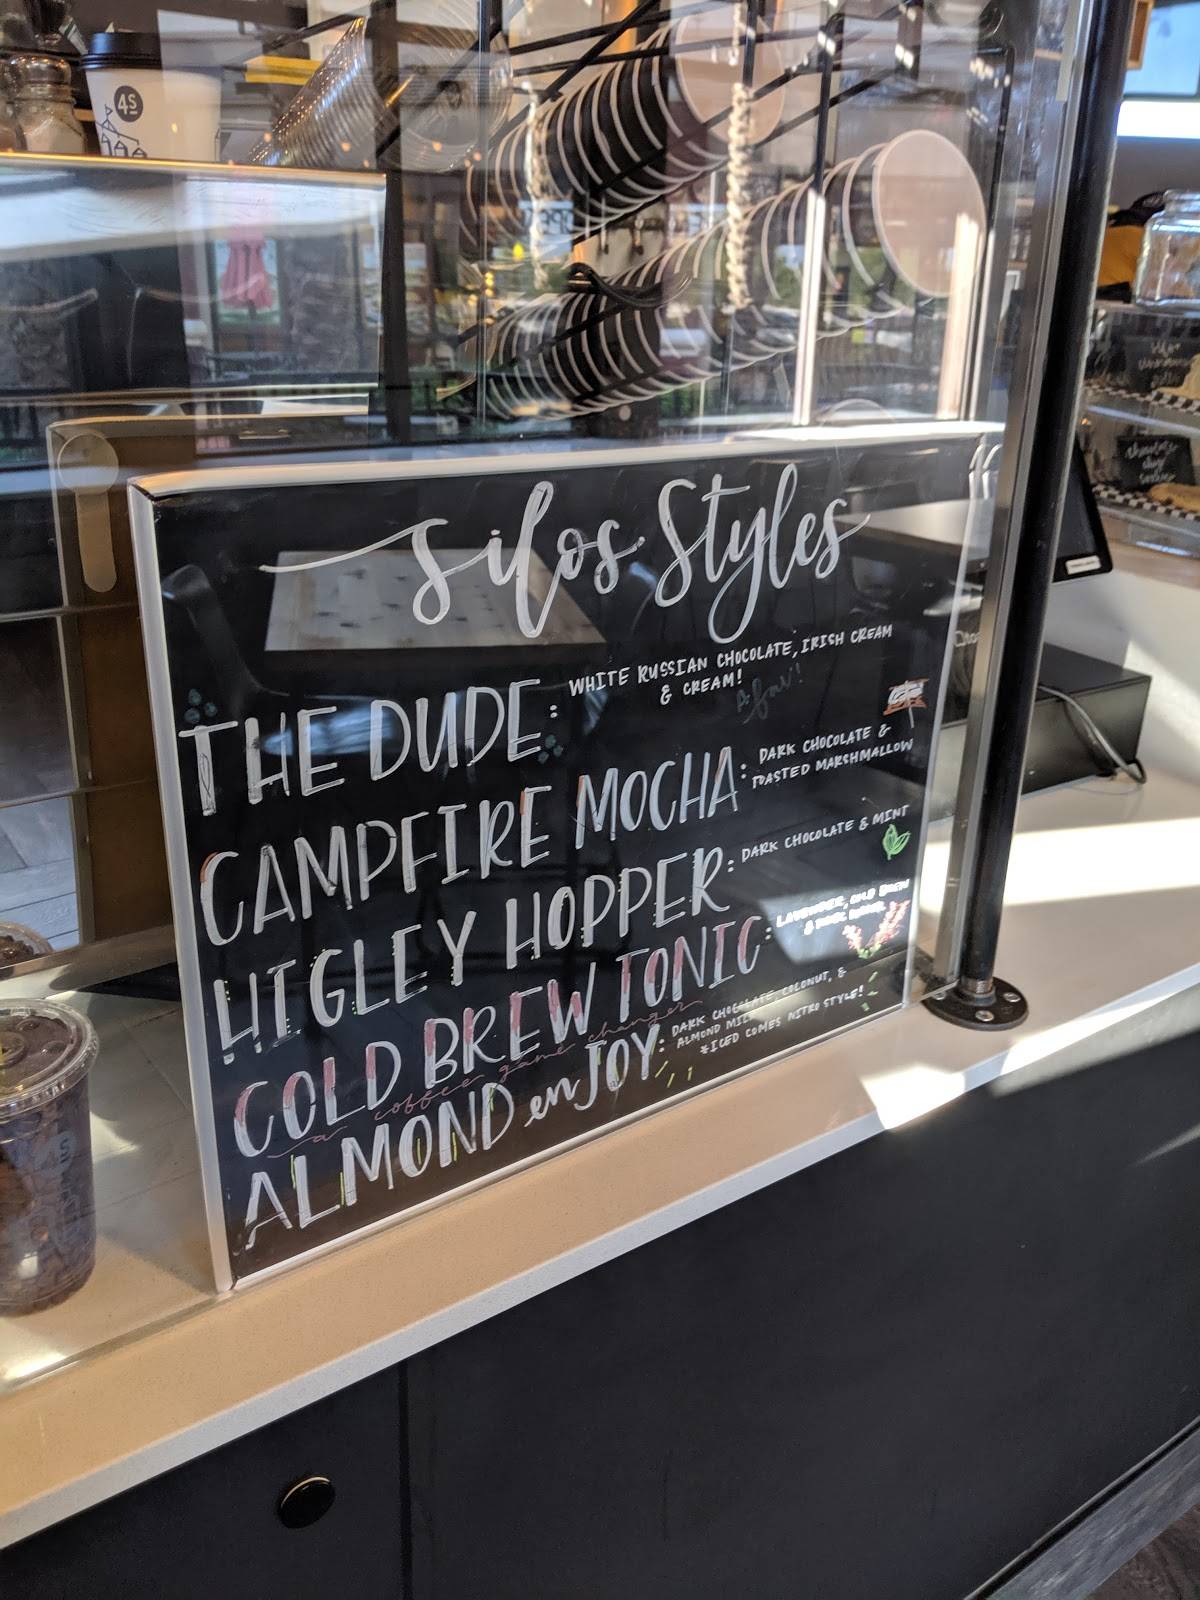 4S
Silos Styles
THE DUDE: WHITE RUSSIAN CHOCOLATE, IRISH CREAM
& CREAM!
A fav!
CAMPFIRE MOCHA: DARK CHOCOLATE &
TOASTED MARSHMALLOW
HIGLEY HOPPER: DARK CHOCOLATE & MINT
COLD BREW TONIC: LAVENDER, COLD BREW
& TONIC WATER
a coffee game changer
ALMOND enJOY: DARK CHOCOLATE, COCONUT, &
ALMOND MILK
*ICED COMES NITRO STYLE!
chocolate
chip